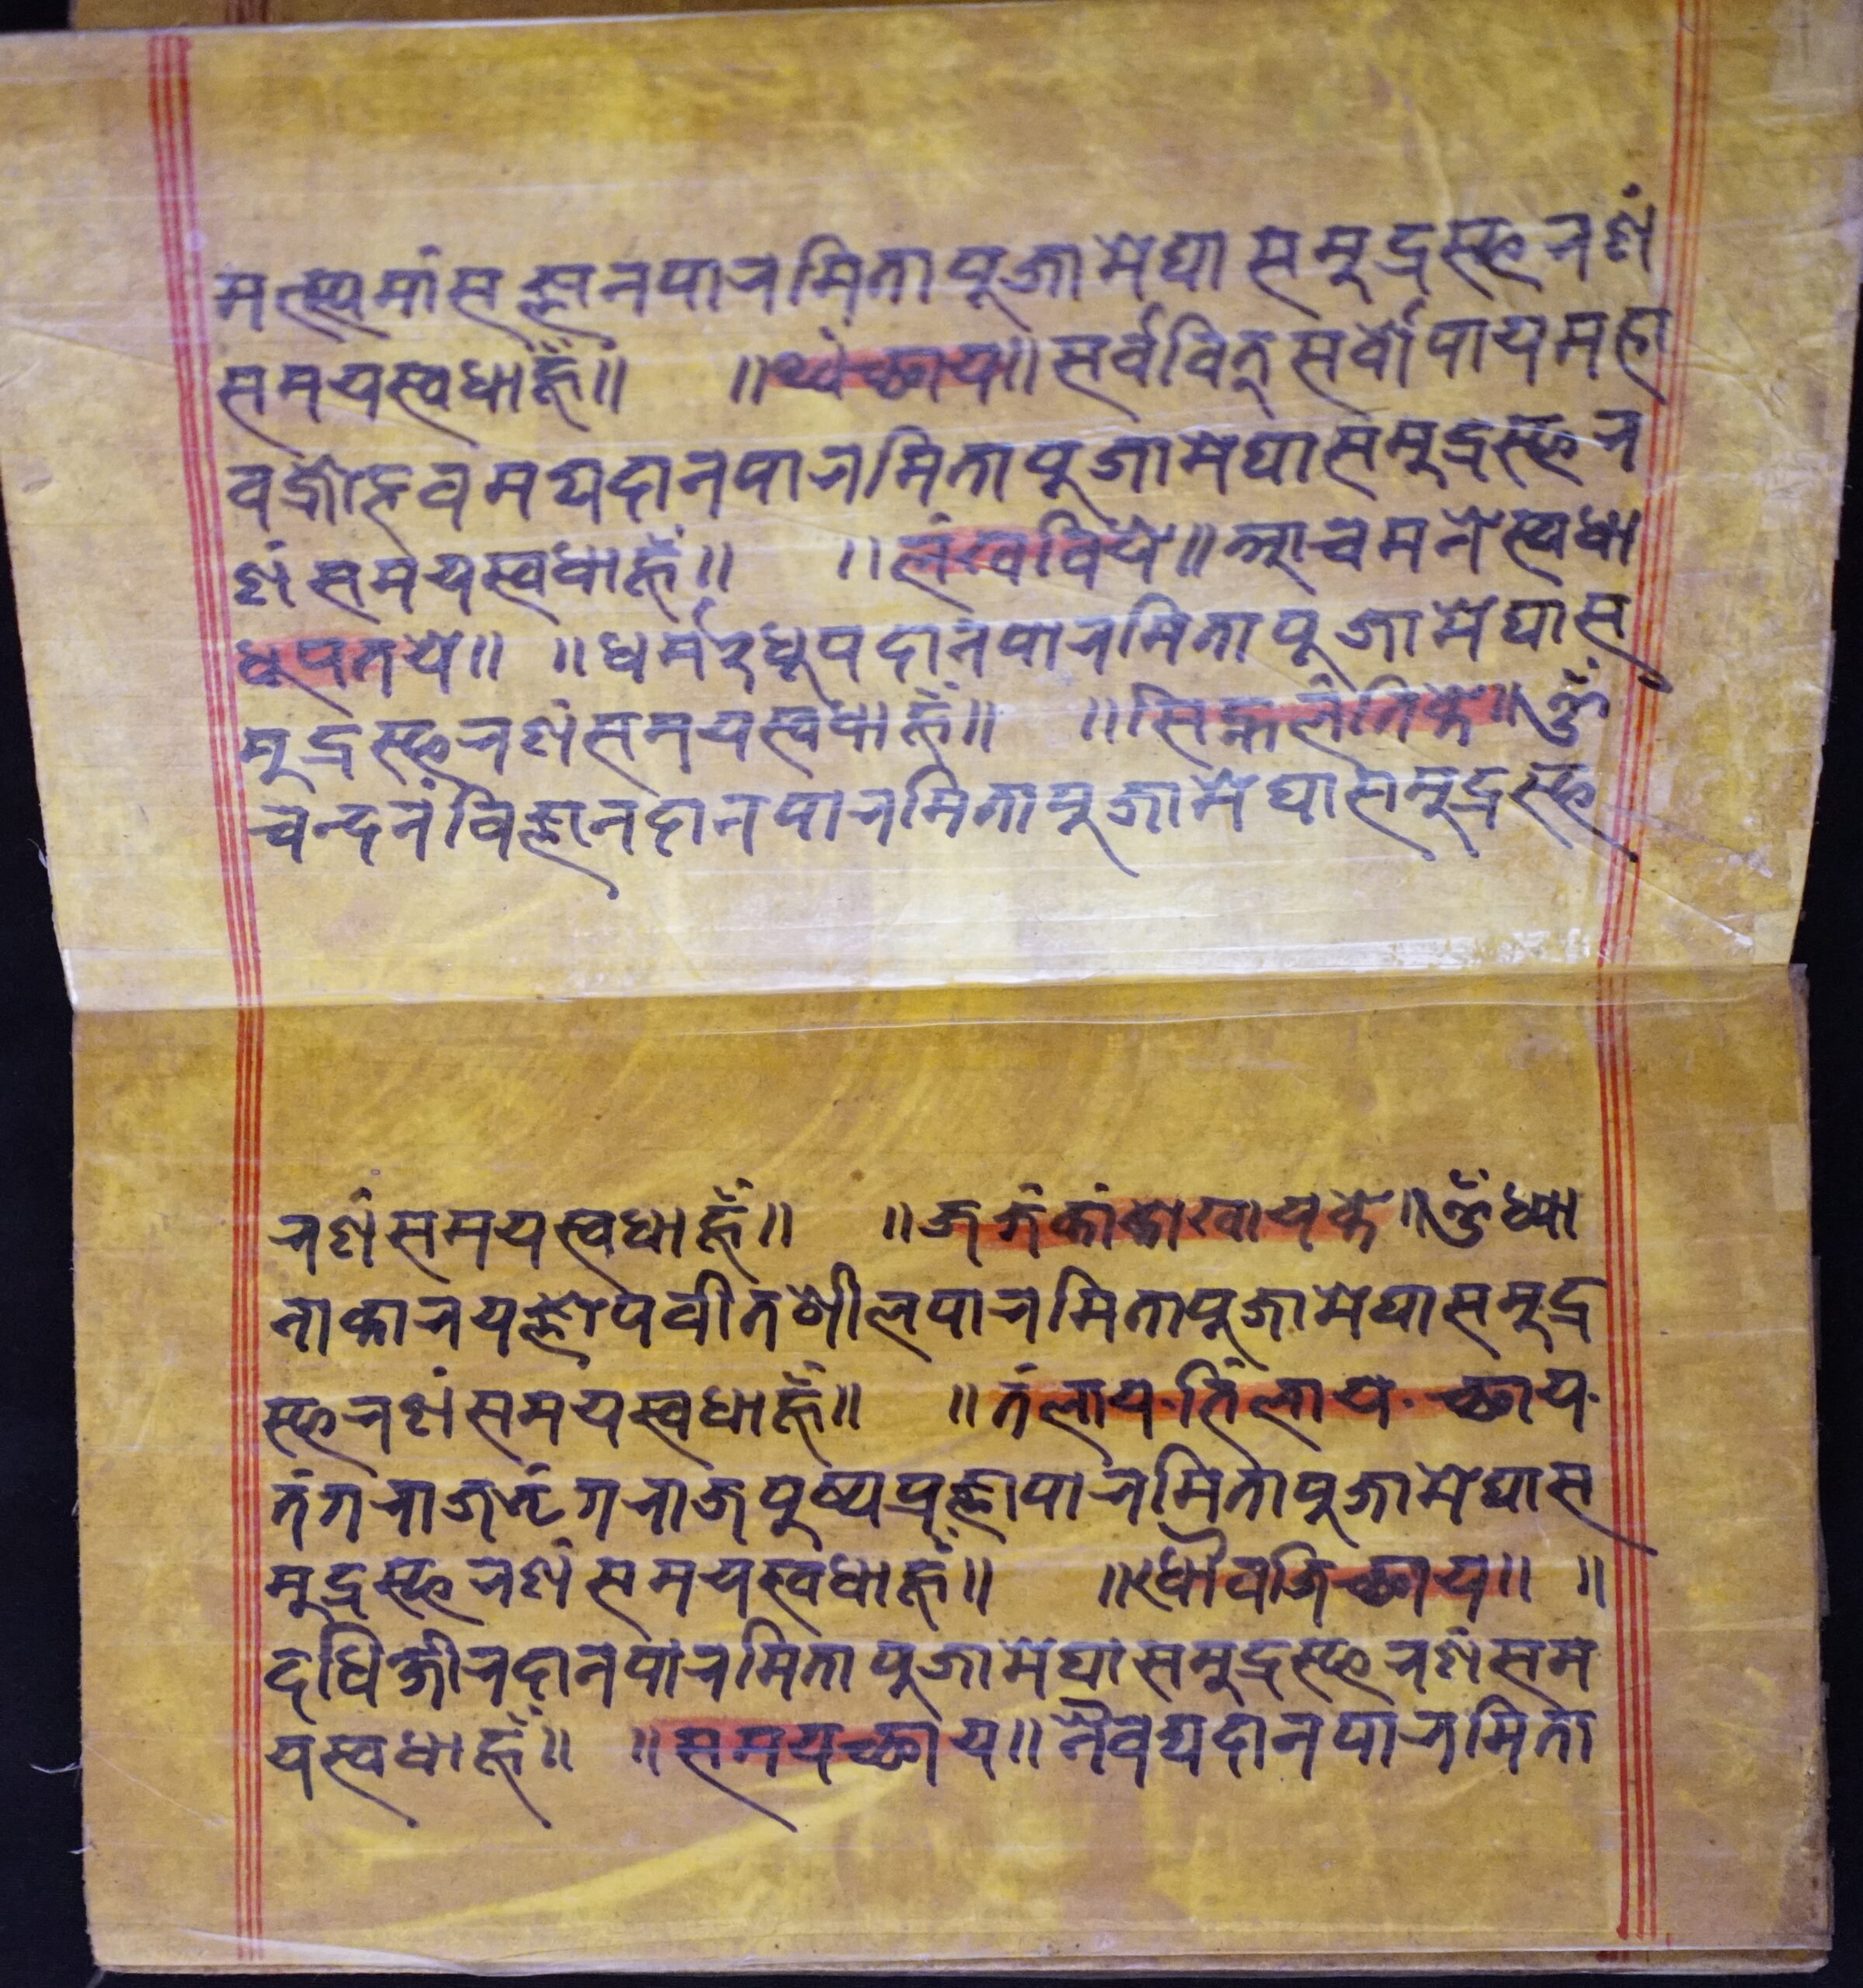 मत्स्यमांसज्ञानपारमितापूजामेघासमुद्रस्फरणं
समयस्वधाहूँ॥ ॥थ्वंछाय॥सर्ववित्सर्वोपायमहा
वज्रोद्भवमद्यदानपारमितापूजामेघासमुद्रस्फर
णंसमयस्वधाहूँ॥ ॥लंखविये॥आचमनेस्वधा
धूपतये॥ ॥धर्मरधूपदानपारमितापूजामेघास
मुद्रस्फरणंसमयस्वधाहूँ॥ ॥सिह्लंतिके॥ॐ
चन्दनंविज्ञानदानपारमितापूजामेघासमुद्रस्फ
रणंसमयस्वधाहूँ॥ ॥जजंकांकोखायके॥ॐध्या
नाकारयज्ञोपवीतशीलपारमितापूजामेघासमुद्र
स्फरणंसमयस्वधाहूँ॥ ॥तंलाय·तिंलाय·छाय·
तंगराजभृंगराजपुष्पप्रज्ञापारमितापूजामेघास
मुद्रस्फरणंसमयस्वधाहूँ॥ ॥धौवजिछाय॥ ॥
दधिक्षीरदानपारमितापूजामेघासमुद्रस्फरणंसम
यस्वधाहूँ॥ ॥समयछाय॥नैवद्यदानपारमिता